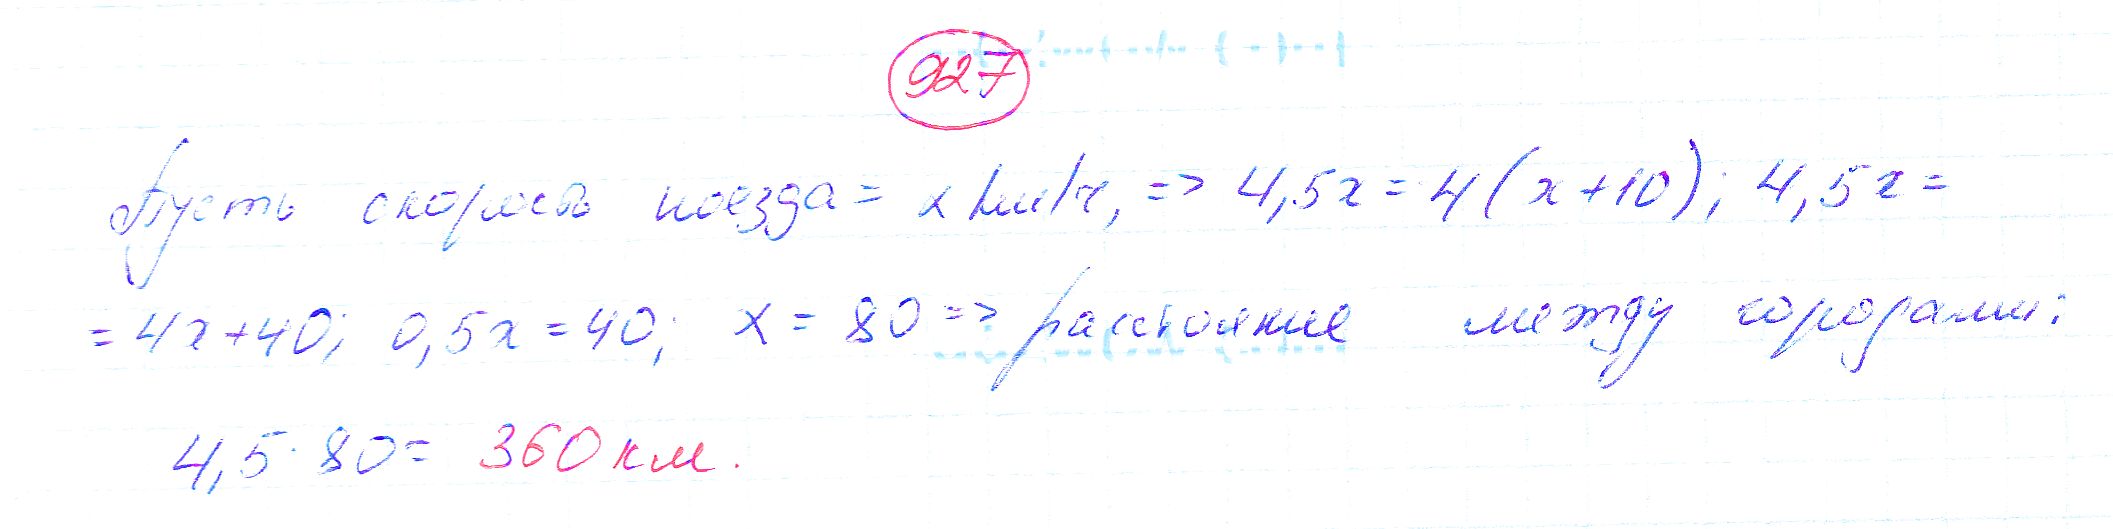 927
Пусть скорость поезда = x км/ч, => 4,5x = 4(x+10); 4,5x =
= 4x+40; 0,5x = 40; x = 80 => расстояние между городами:
4,5 · 80 = 360 км.